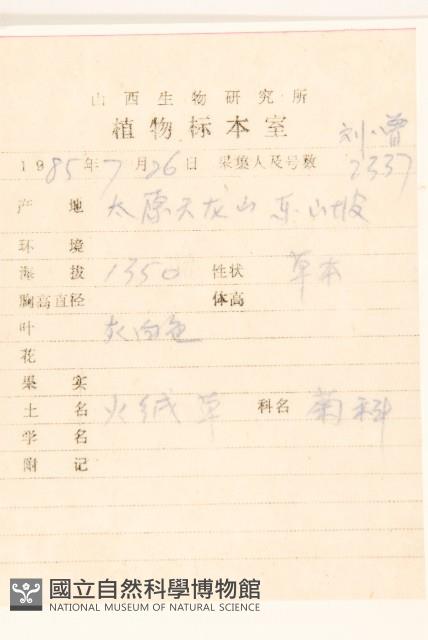 山西生物研究所
植物标本室
刘 曾
1985年7月26日 采集人及号数 2337
产地 太原天龙山 东山坡
环境
海拔 1350 性状 草本
胸高直径 体高
叶 灰白色
花
果实
土名 火绒草 科名 菊科
学名
附记
國立自然科學博物館
NATIONAL MUSEUM OF NATURAL SCIENCE